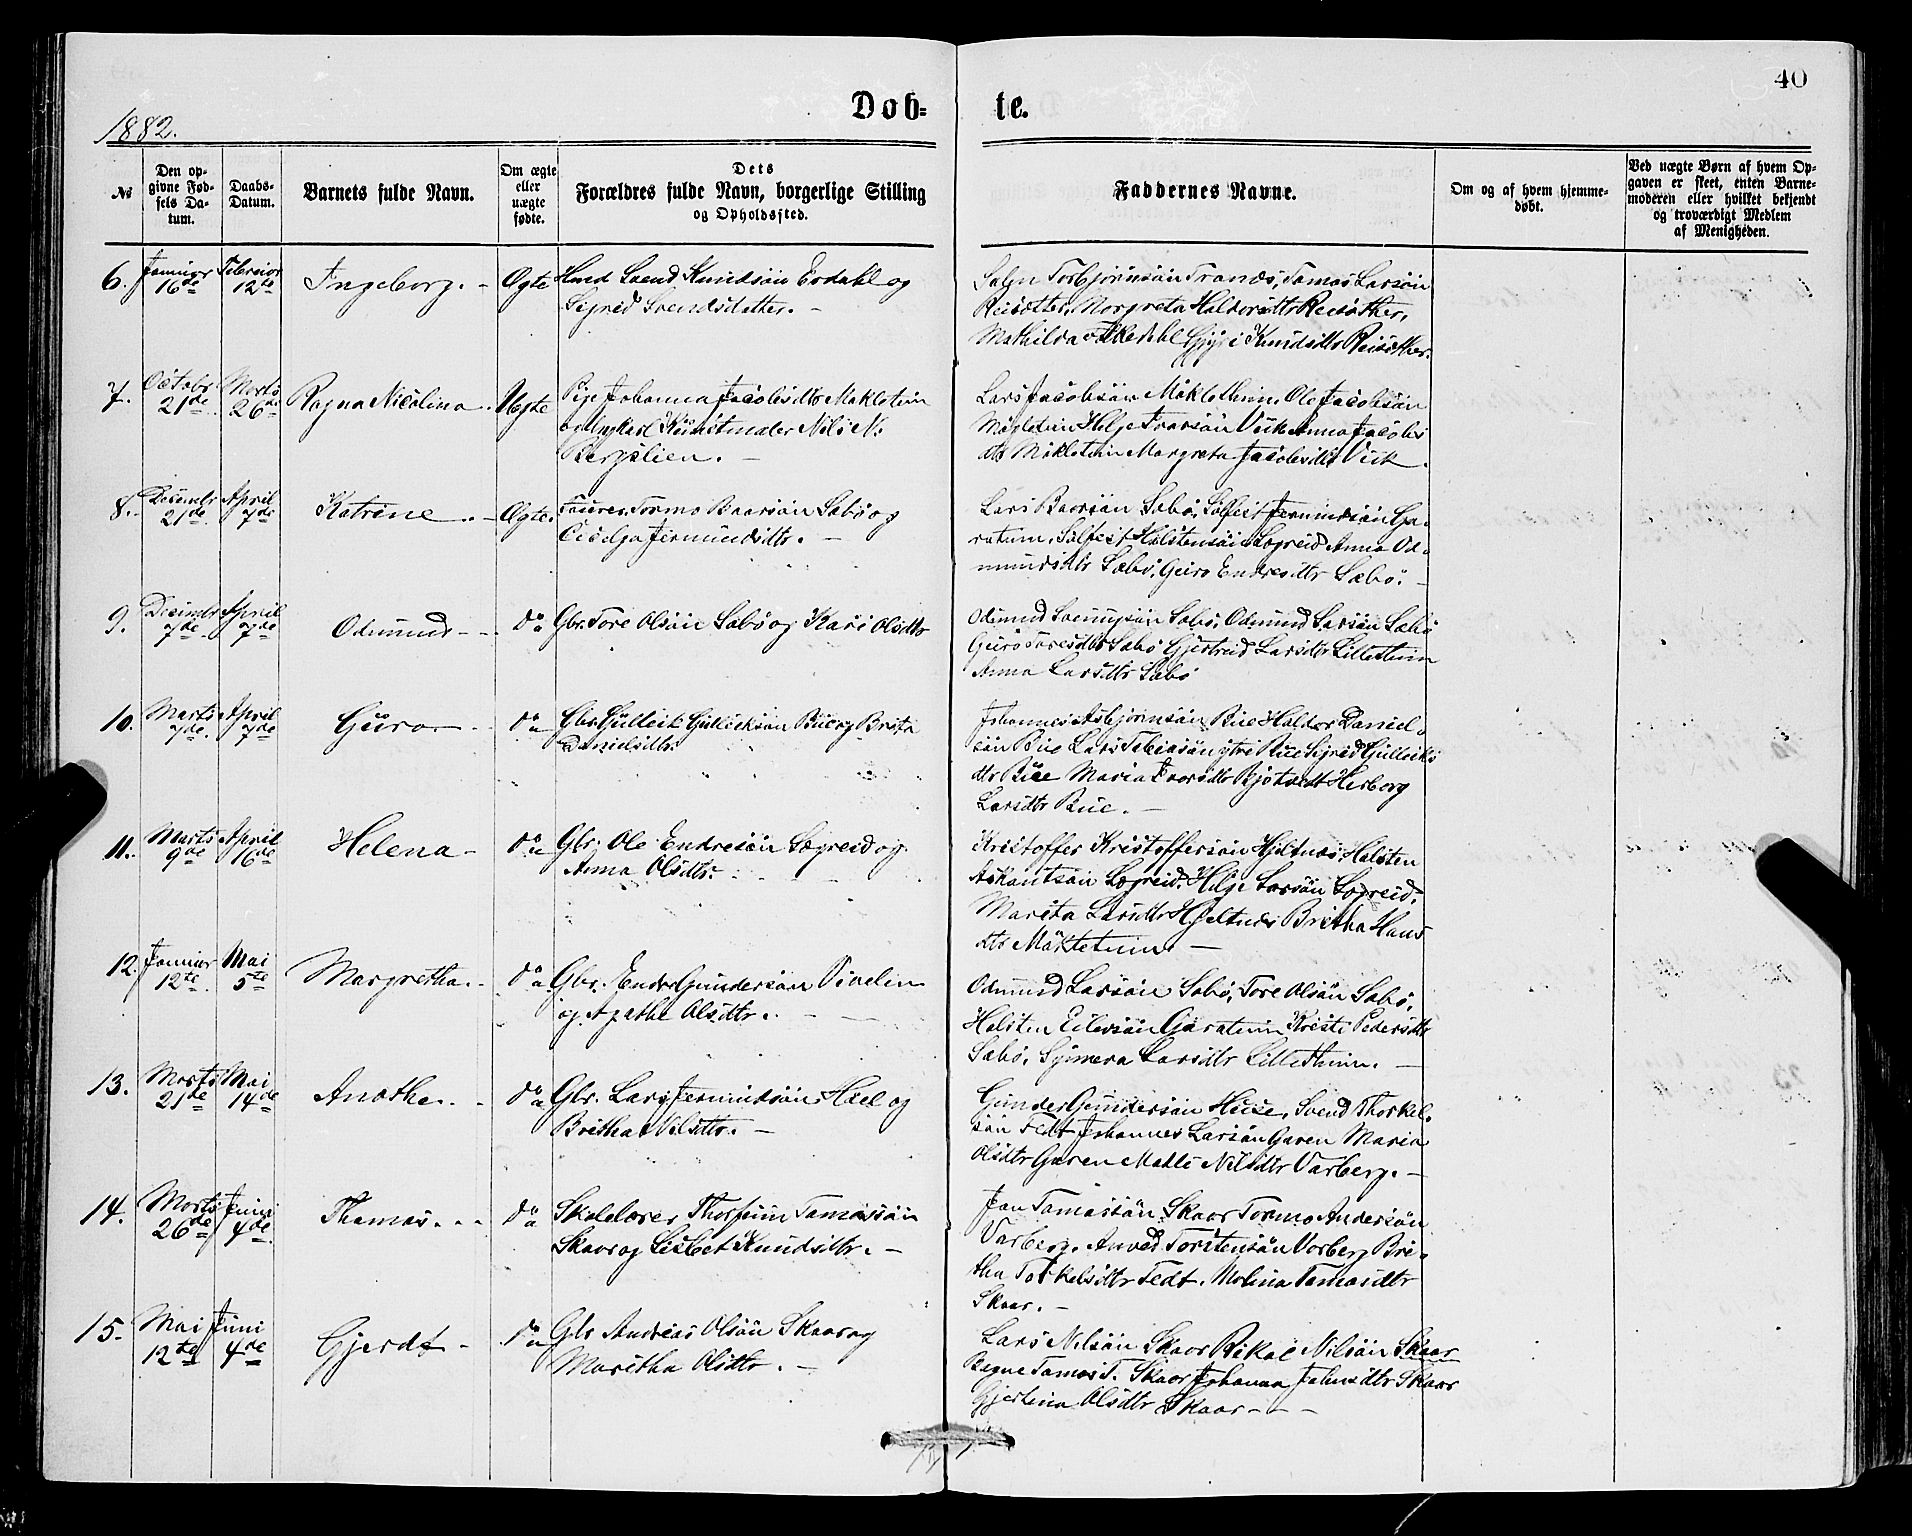 40
Dob=
te.
1882.
No
Den op-
givne Fød-
sels Da-
tum.
Daabs-
Datum.
Barnets fulde Navn.
Om ægte
eller
uægte
fødte.
Dets
Forældres fulde Navn, borgerlige Stilling
og Opholdssted.
Faddernes Navne.
Om og af hvem hjemme-
døbt.
Ved uægte Børn af hvem Op-
gaven er skeet, enten Barne-
moderen eller hvilket bekjendt
og troværdigt Medlem
af Menigheden.
6. Januar 16de Februar 12te Ingeborg. Ægte Svend Knudsön Erdahl og
Sigrid Svendsdatter.
Torbjörnsön Tranæs, Tamas Larsön
Reisæther, Margreta Haldorsdtr Reisæther,
Mathilda Knudsdtr Reisæther.
7. Octobr 21de Marts 26de Ragna Nicolina. Uægte Pige Johanna Jacobsdtr Mæklethun
og Ungkarl Kunstmaler Nils N.
Bergslien.
Lars Jacobsön Mæklethun, Ole Jacobsön
Mæklethun Helje Ivarsön Viik Anna Jacobs
dtr Mæklethun Margreta Jacobsdtr Viik.
8. Desembr 21de April 7de Katrine. Ægte. Tormo Baarsön Sæbö og
Jermundsdtr.
Lars Baarsön Sæbö, Sjölfest Jermundsön Ga-
ratun, Sjölfest Halstensön Legreid Anna Od-
mundsdtr Sæbö, Guro Endresdtr Sæbö.
9. Desembr 7de April 7de Odmund do Gbr. Tore Olsön Sæbö og Kari Olsdtr
Odmund Sæbö, Odmund Larsön Sæbö
Guro Toresdtr Sæbö Gjertrud Larsdtr Lillethun
Anna Larsdtr Sæbö
10. Marts 7de April 7de Guro. do Gbr. Gulleik Gulleiksön Bue og Brita
Danielsdtr.
Johannes Asbjörnsön Bue Haldor Daniel-
sön Bue Lars Tobiasön ytre Bue Sigrid Gulleiks
dtr Bue Maria Ivarsdtr Herborg
Larsdtr Bue.
11. Marts 9de April 16de Helena do Gbr. Ole Endresön Legreid og
Anna Olsdtr.
Kristoffer Kristoffersön Hjeltnæs, Halsten
Askautsön Legreid, Helje Larsön Legreid,
Marita Larsdtr Hjeltnæs Britha Hans
dtr Mæklethun.
12. Januar 12te Mai 5te Margretha. do Gbr. Endre Gundersön Vivelin
og Agatha Olsdtr.
Odmund Larsön Sæbö, Tore Olsön Sæbö,
Halsten Eilevsön Garatun Kristi Pedersdtr
Sæbö, Synneva Larsdtr Lillethun.
13. Marts 21de Mai 14de Anathe. do Gbr. Lars Jermundsön Hæl og
Britha Nilsdtr.
Gunder Gundersön Huse, Svend Thorkel-
sön Tedt Johannes Larsön Garen Maria
Olsdtr Garen Mallé Nilsdtr Varberg.
14. Marts 26de Juni 4de Thomas. do Skolelærer Thorfinn Tamassön
Skaar og Lisbet Knudsdtr.
Jan Tamassön Skaar Tormo Andersön
Varberg, Torstensön Varberg Bri-
tha Torkelsdtr Tedt, Molina Tamasdtr
Skaar.
15. Mai 12te Juni 4de Gjerdt do Gbr Andrias Olsön Skaar og
Maritha Olsdtr.
Lars Nilsön Skaar Mikal Nilsön Skaar
Tamas T. Skaar Johanna Jahnsdtr Skaar
Gjertina Olsdtr Skaar